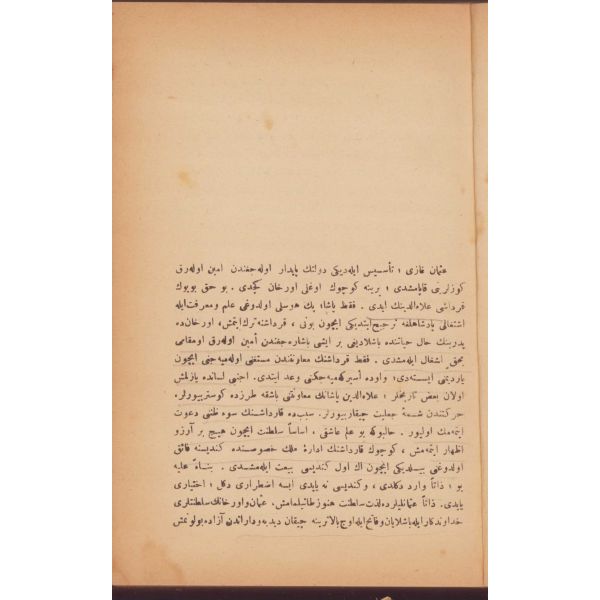 عثمان غازی ؛ تأسیس ایله‌دیکی دولتك پایدار اوله‌جغندن امین اوله‌رق
کوزلرینی قاپامشدی ؛ یرینه کوچوك اوغلی اورخان کچدی . بو حق بویوك
قرداشی علاءالدینك ایدی . فقط پاشا؛ پك هوسلی اولدوغی علم ومعرفت‌ایله
اشتغالی پادشاهلغه ترجیح ایتدیکی ایچون بونی ، قرداشنه ترك ایتمش، اورخان‌ده
پدرینك حال حیاتنده باشلادیغی بر ایشی باشاره‌جغندن أمین اوله‌رق اومقامی
بحق اشغال ایله‌مشدی . فقط قرداشنك معاونتدن مستغنی اوله‌میه‌جغی ایچون
یاردیمنی ایسته‌دی؛ واوده أسیرکه‌میه‌جکنی وعد ایتدی. اجنبی لسانده یازلمش
اولان بعض تاریخلر ؛ علاءالدین پاشانك معاونتنی باشقه طرزده کوستریورلر.
حرکتندن شمه‌ٔ جعلیت چیقاریورلر. سببده قارداشنك سوء ظننی دعوت
ایتمه‌مك اولیور . حالبوکه بو علم عاشقی ، اساساً سلطنت ایچون هیچ بر آرزو
اظهار ایتمه‌مش ، کوچوك قارداشنك ادارهٔ ملك خصوصنده کندیسنه فائق
اولدوغنی بیلدیکی ایچون اك اول کندیسی بیعت ایله‌مشدی . بنـاءً علیه
بو ؛ ذاتاً وارد دکلدی ، وکندیسی نه یاپدی ایسه اضطراری دکل ؛ اختیاری
یاپدی. ذاتاً عثمانلیلرده لذت سلطنت هنوز طاتیلمامش. عثمان واورخانك سلطنتلری
خداوندکار ایله باشلایان وفاتح ایله اوج بالاترینه چیقان دبدبه ودار اتدن آزاده بولونمش